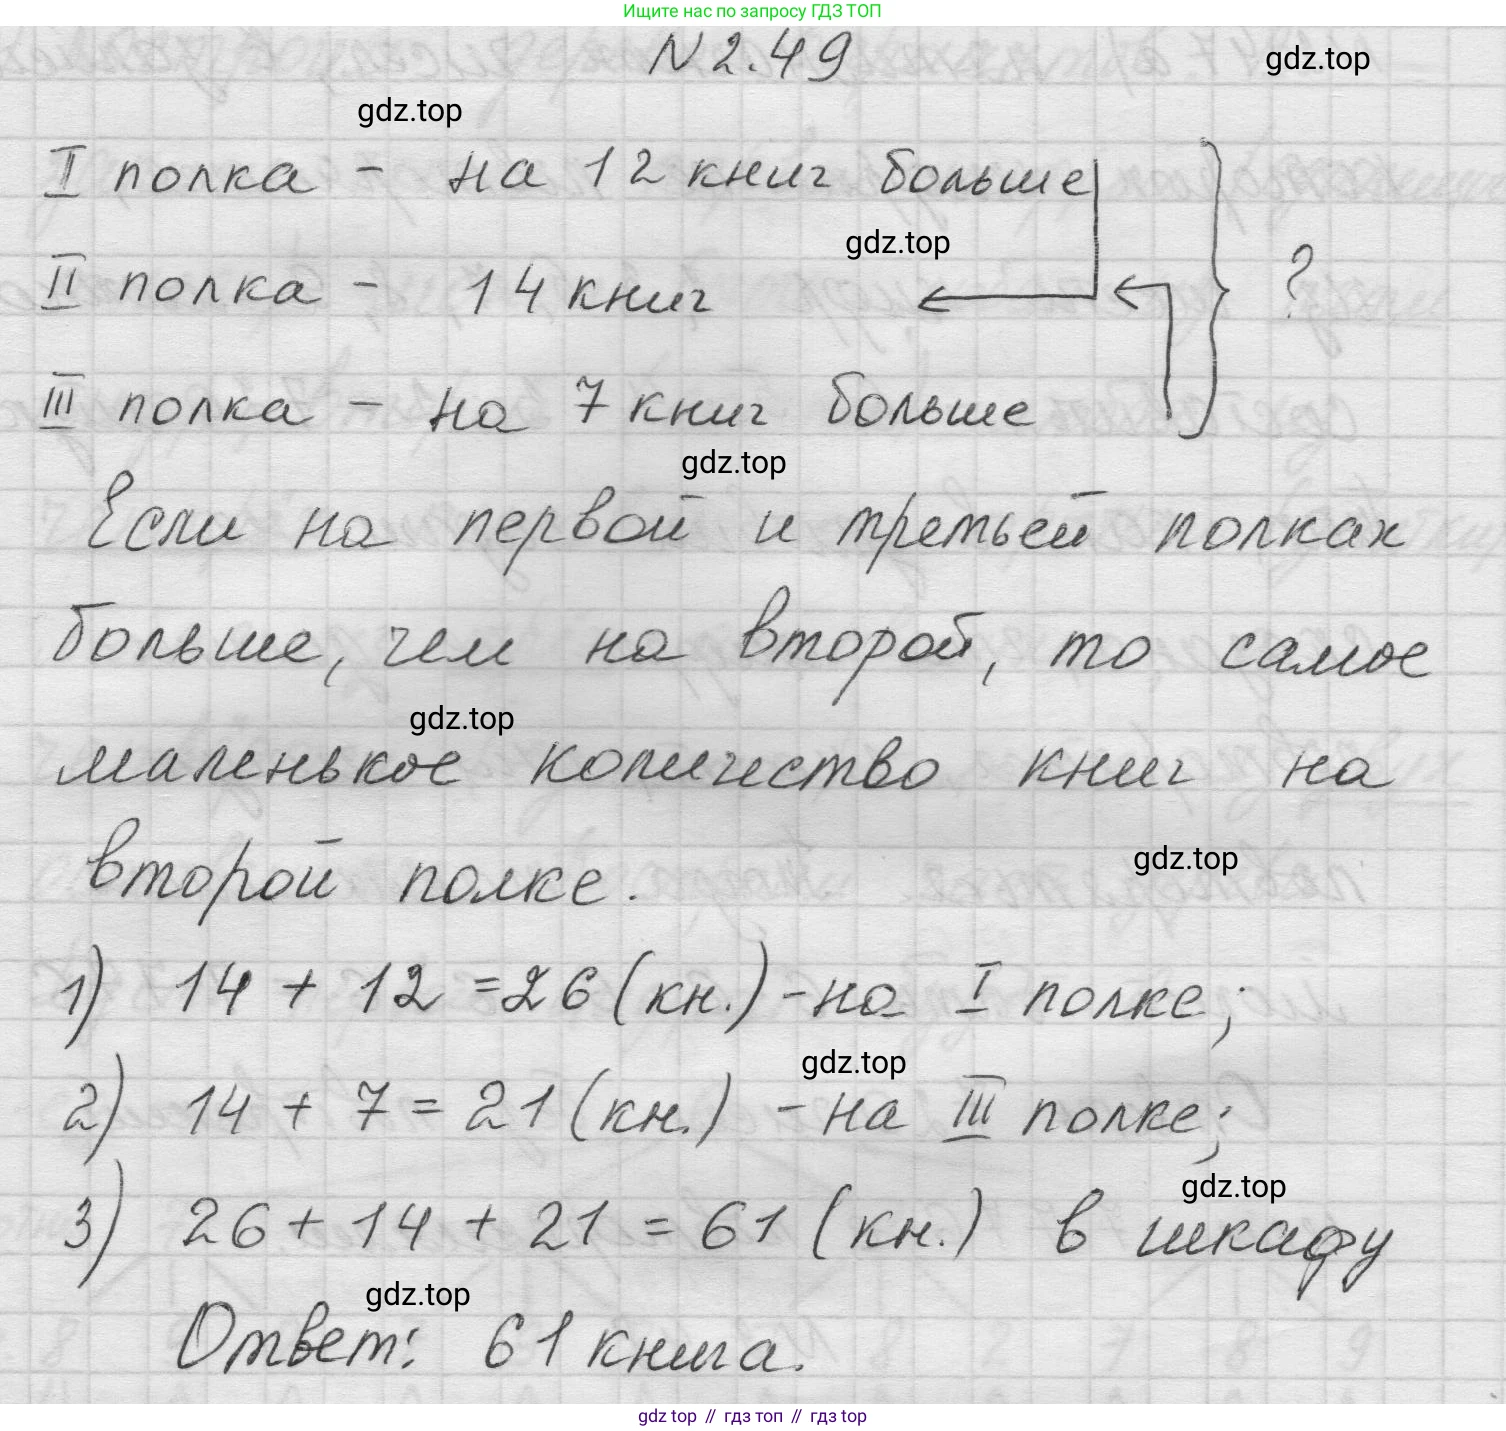 Ищите нас по запросу ГДЗ ТОП
N 2.49
gdz.top
gdz.top
I полка - на 12 книг больше
gdz.top
II полка - 14 книг
?
III полка - на 7 книг больше
gdz.top
Если на первой и третьей полках
больше, чем на второй, то самое
gdz.top
маленькое количество книг на
второй полке.
gdz.top
1) 14 + 12 = 26 (кн.) - на I полке;
gdz.top
2) 14 + 7 = 21 (кн.) - на III полке;
gdz.top
3) 26 + 14 + 21 = 61 (кн.) в шкафу
gdz.top
Ответ: 61 книга.
gdz top // гдз топ // гдз top